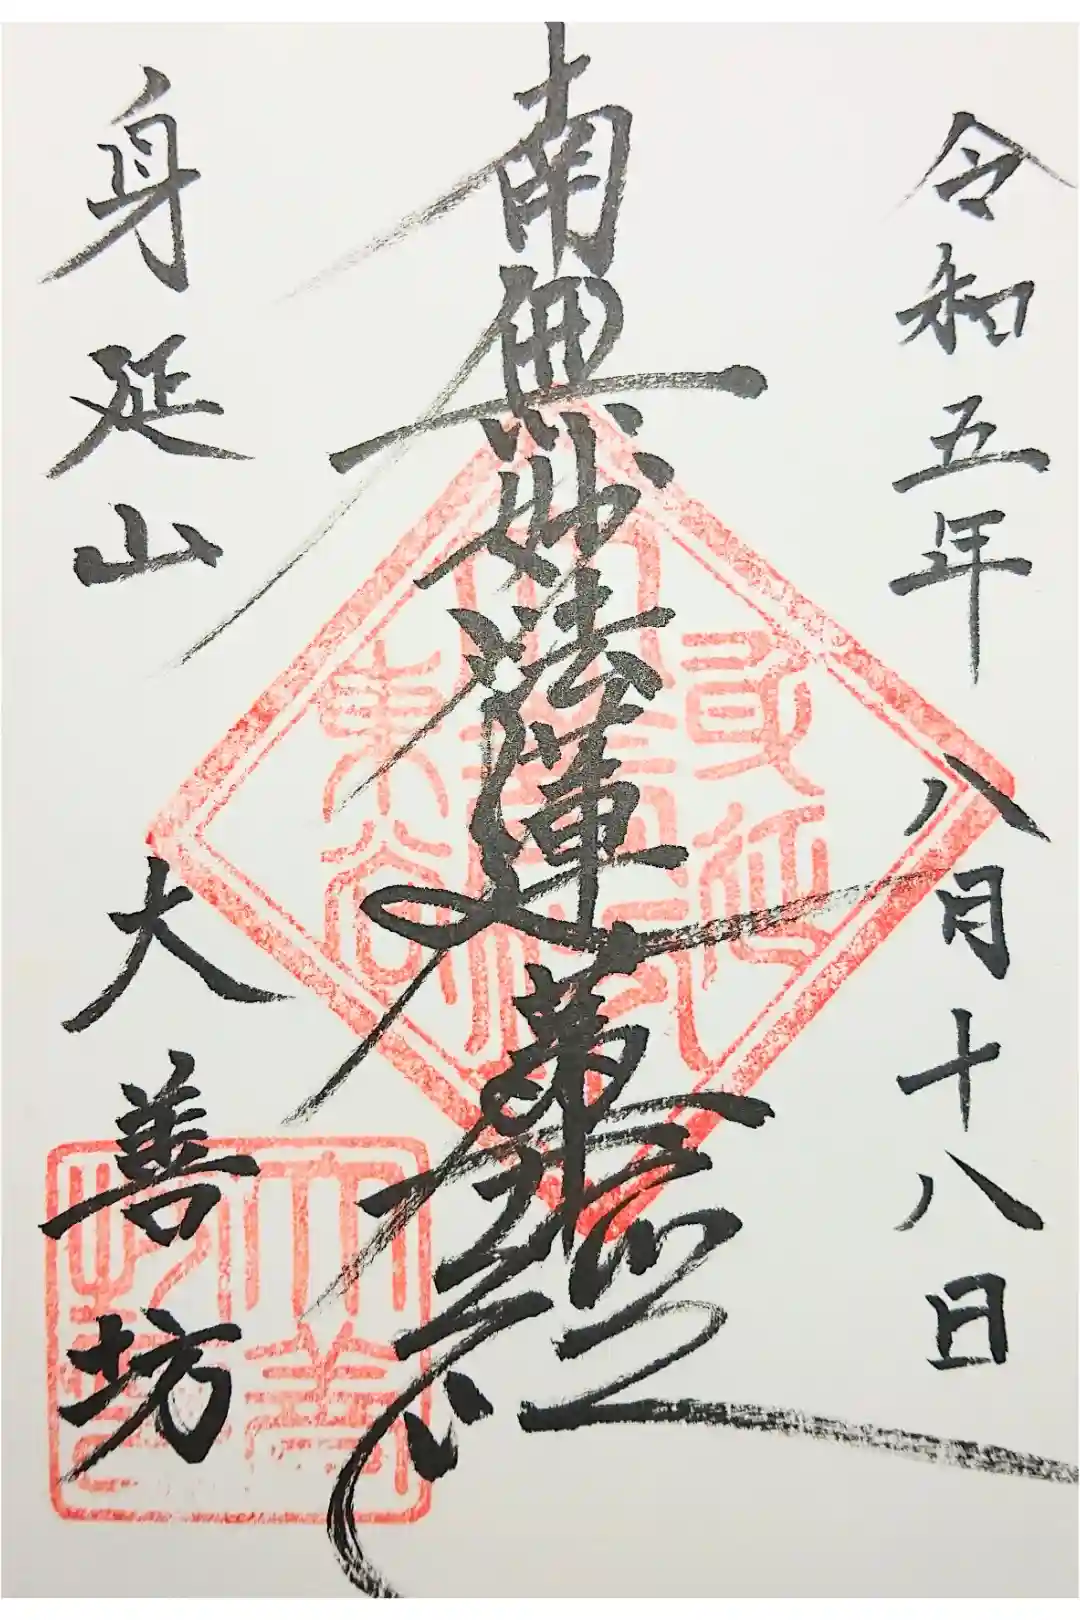 令和五年 八月十八日
南無妙法蓮華経
身延山 大善坊